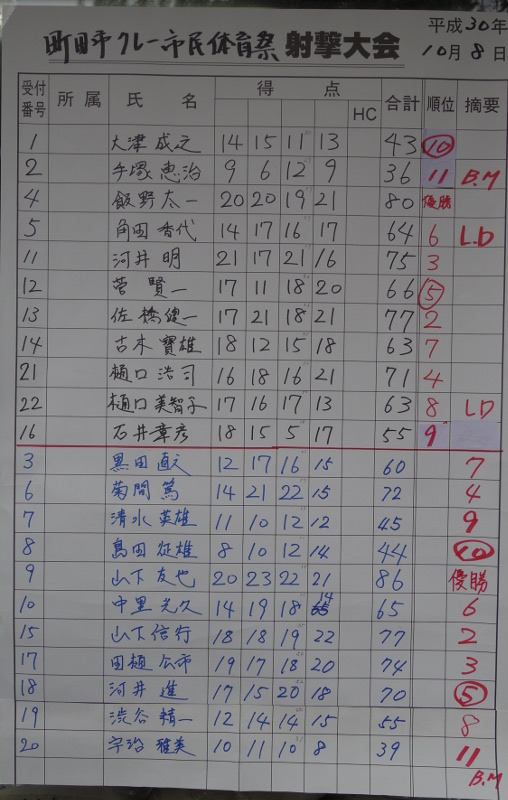 町田市クレー市民体育祭 射撃大会 平成30年
10月8日
受付番号 所属 氏名 得点 HC 合計 順位 摘要
1 大津 成之 14 15 11 13 43 10
2 手塚 恵治 9 6 12 9 36 11 B.M
4 飯野 太一 20 20 19 21 80 優勝
5 角田 香代 14 17 16 17 64 6 L.D
11 河井 明 21 17 21 16 75 3
12 菅 賢一 17 11 18 20 66 5
13 佐橋 健一 17 21 18 21 77 2
14 古木 寶雄 18 12 15 18 63 7
21 樋口 浩司 16 18 16 21 71 4
22 樋口 美智子 17 16 17 13 63 8 L.D
16 石井 章彦 18 15 5 17 55 9
3 黒田 直 12 17 16 15 60 7
6 菊間 篤 14 21 22 15 72 4
7 清水 英雄 11 10 12 12 45 9
8 島田 征雄 8 10 12 14 44 10
9 山下 友也 20 23 22 21 86 優勝
10 中里 光久 14 19 18 14 65 6
15 山下 信行 18 18 19 22 77 2
17 田樋 公市 19 17 18 20 74 3
18 河井 進 17 15 20 18 70 5
19 渋谷 精一 12 14 14 15 55 8
20 宇治 雅美 10 11 10 8 39 11
B.M